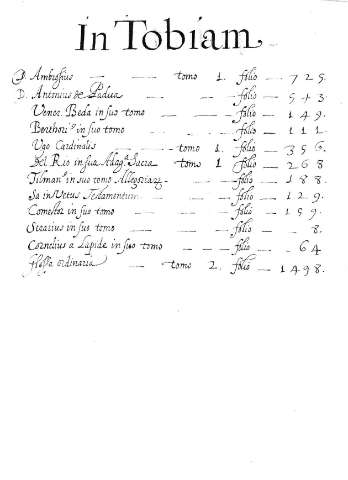 In Tobiam
D. Ambrosius — — tomo 1. folio — 725.
D. Antonius de Padua — — folio — 543.
Vener. Beda in suo tomo — — folio — 149.
Berthori⁹ in suo tomo — — folio — 111.
Ugo Cardinalis — — tomo 1. folio — 356.
Del Rio in sua Adag. Sacra — tomo 1 folio — 268
Tilman⁹ in suo tomo Allegoriarũ — folio — 188.
Sa in Vetus Testamentum — — folio — 129.
Comestor in suo tomo — — folio — 159.
Serarius in suo tomo — — folio — 8.
Cornelius a Lapide in suo tomo — — folio — 64
Glossa ordinaria — — tomo 2. folio — 1498.